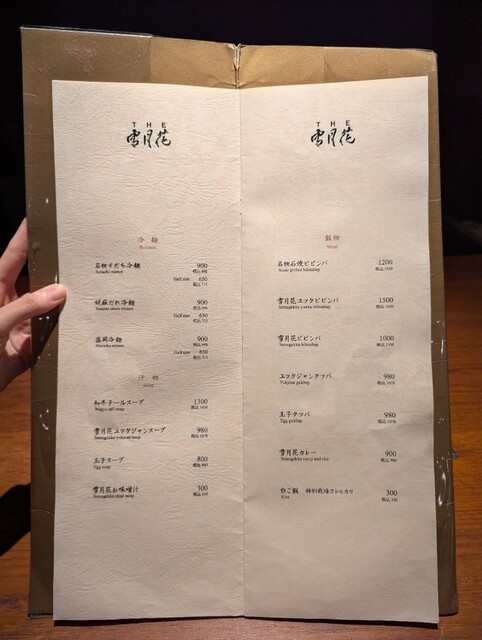 THE
雪月花
冷麺
名物すだち冷麺 900
Sudachi reimen 税込 990
Half size 650
税込 715
胡麻だれ冷麺 900
Sesame sauce reimen 税込 990
Half size 650
税込 715
盛岡冷麺 900
Morioka reimen 税込 990
Half size 650
税込 715
汁物
soup
和牛テールスープ 1300
Wagyu tail soup 税込 1430
雪月花ユッケジャンスープ 980
Setsugekka yukejan soup 税込 1078
玉子スープ 800
Egg soup 税込 880
雪月花お味噌汁 300
Setsugekka miso soup 税込 330
THE
雪月花
飯物
Meal
名物石焼ビビンバ 1200
Stone grilled bibimbap 税込 1320
雪月花ユッケビビンバ 1500
Setsugekka yukke bibimbap 税込 1650
雪月花ビビンバ 1000
Setsugekka bibimbap 税込 1100
ユッケジャンクッパ 980
Yukejan gukbap 税込 1078
玉子クッパ 980
Egg gukbap 税込 1078
雪月花カレー 900
Setsugekka curry and rice 税込 990
白ご飯 特別栽培コシヒカリ 300
Rice 税込 330